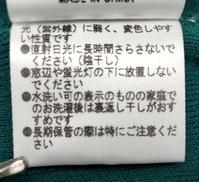 MADE IN CHINA
光(紫外線)に弱く、変色しやす
い性質です
●直射日光に長時間さらさないで
ください(陰干し)
●窓辺や蛍光灯の下に放置しない
でください
●水洗い可の表示のものの家庭で
のお洗濯後は裏返し干しがおす
すめです
●長期保管の際は特にご注意くだ
さい